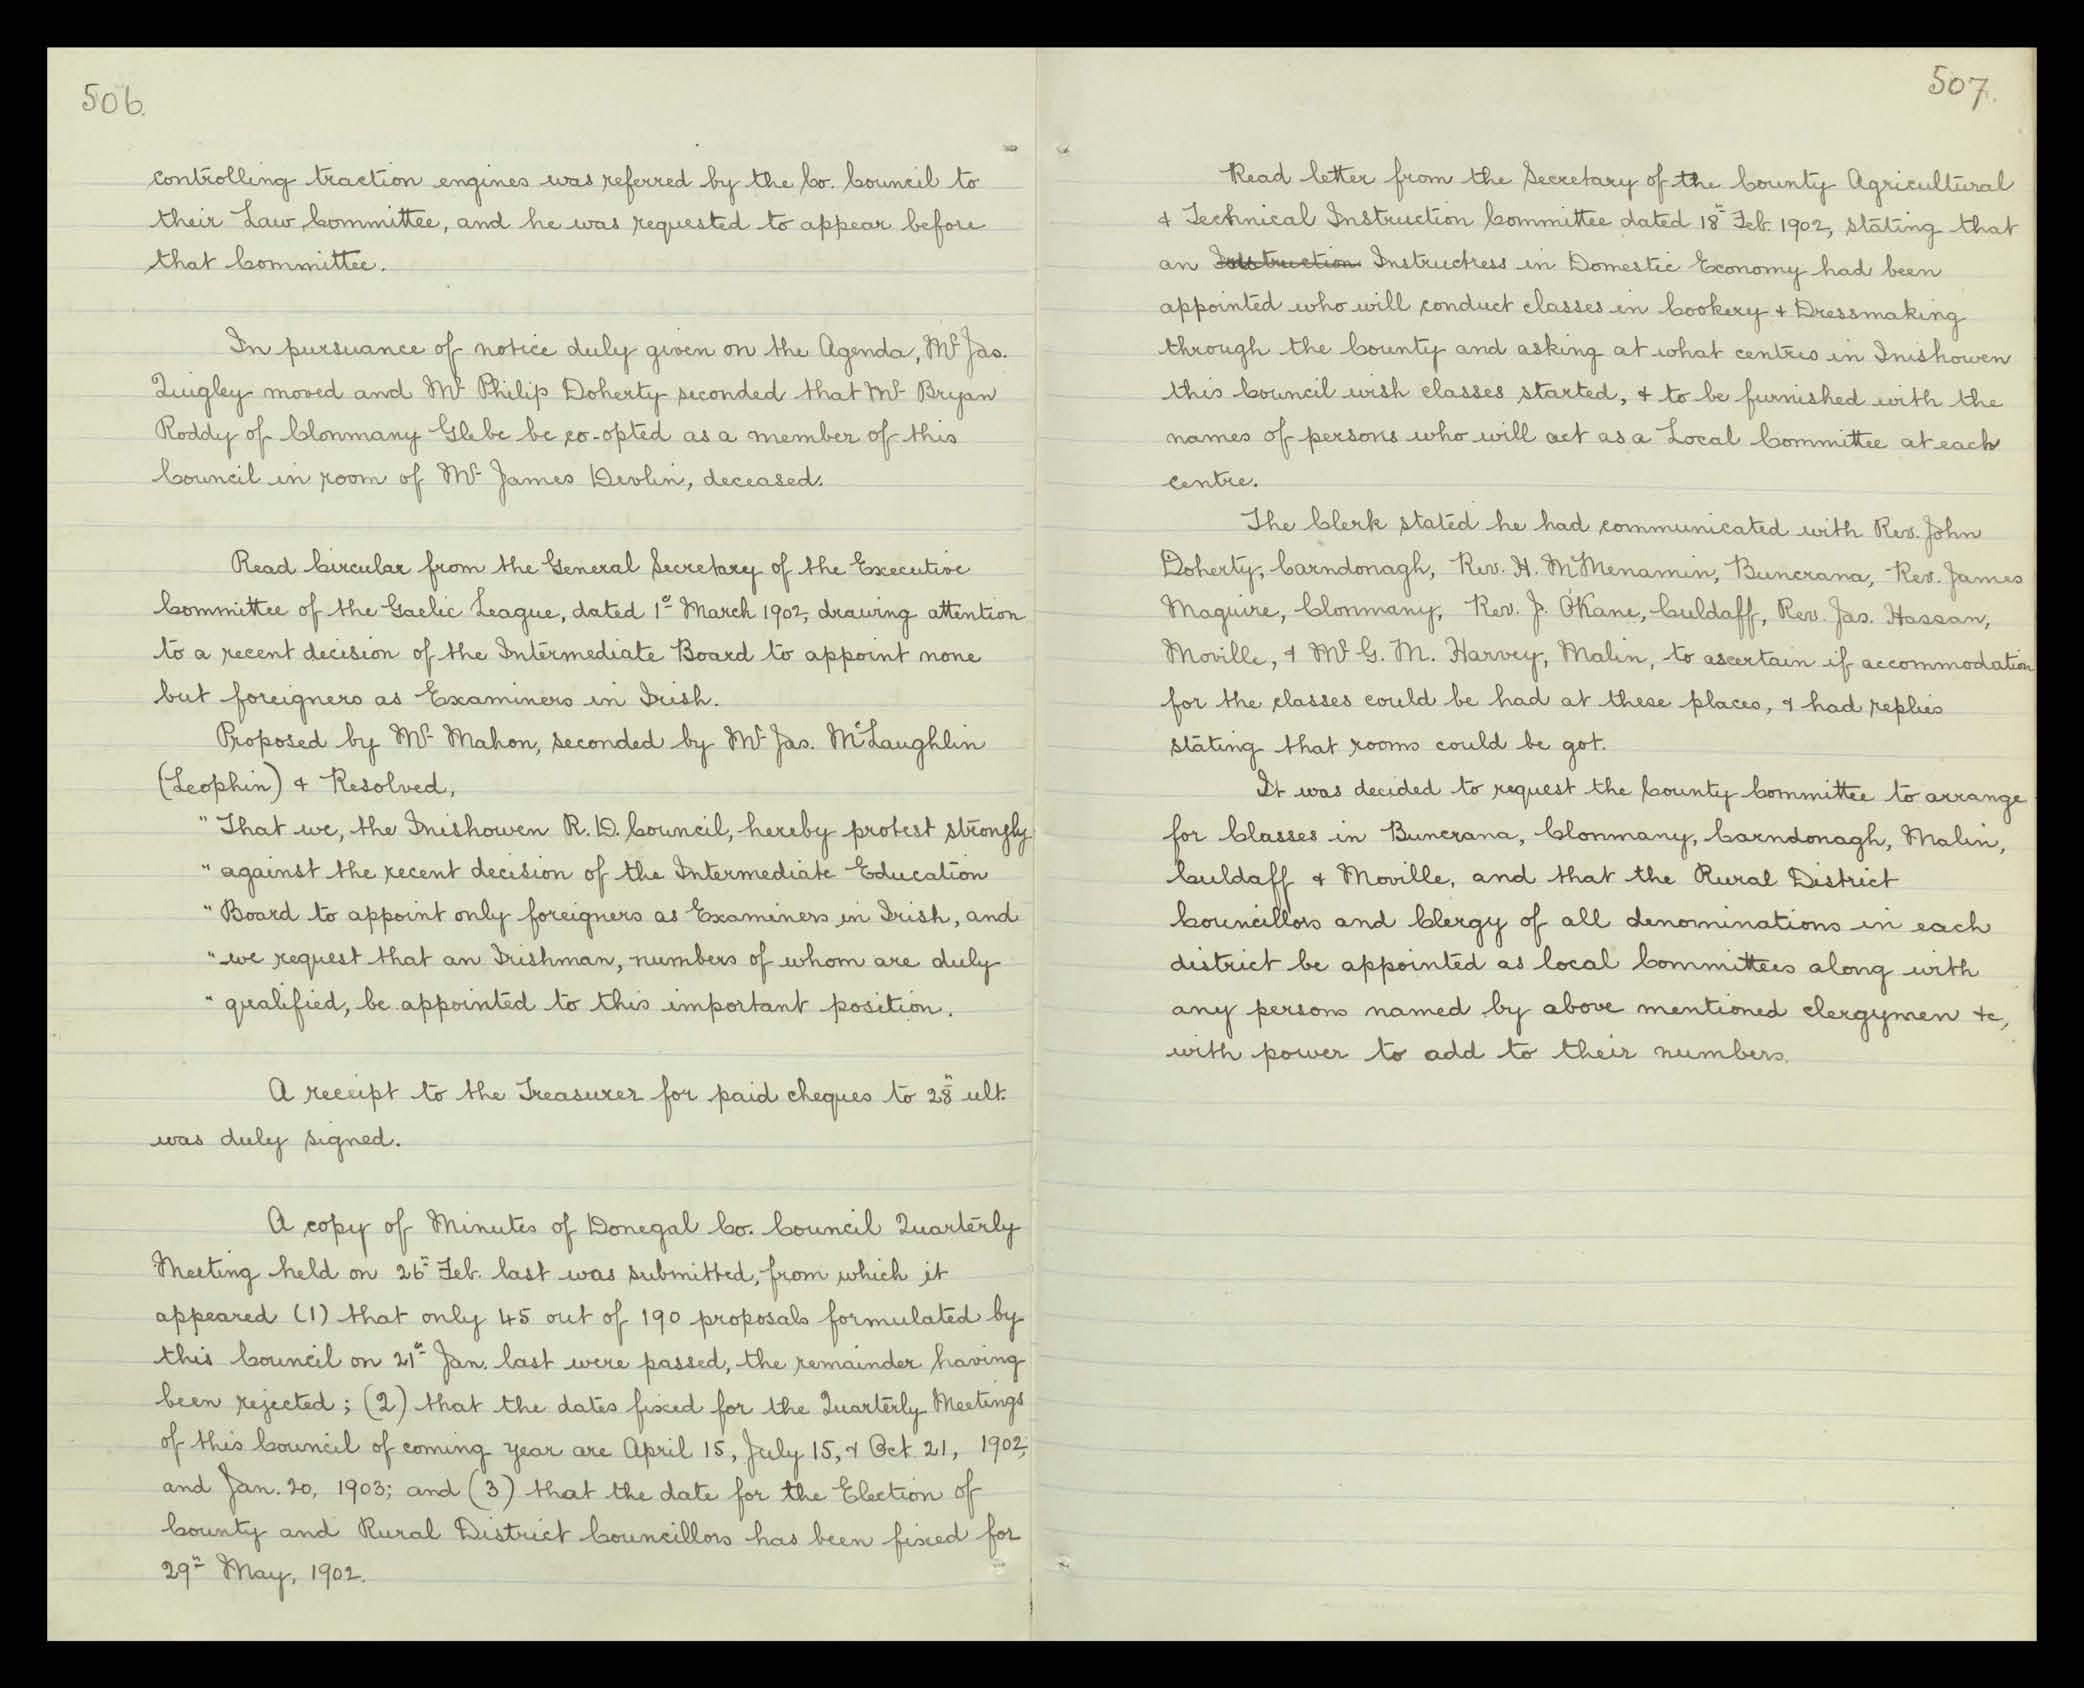 506.
controlling traction engines was referred by the Co. Council to
their Law Committee, and he was requested to appear before
that Committee.
In pursuance of notice duly given on the Agenda, Mr Jas.
Quigley moved and Mr Philip Doherty seconded that Mr Bryan
Roddy of Clonmany Glebe be co-opted as a member of this
Council in room of Mr James Devlin, deceased.
Read Circular from the General Secretary of the Executive
Committee of the Gaelic League, dated 1st March 1902, drawing attention
to a recent decision of the Intermediate Board to appoint none
but foreigners as Examiners in Irish.
Proposed by Mr Mahon, seconded by Mr Jas. McLaughlin
(Leophin) & Resolved,
"That we, the Inishowen R.D. Council, hereby protest strongly
" against the recent decision of the Intermediate Education
" Board to appoint only foreigners as Examiners in Irish, and
" we request that an Irishman, numbers of whom are duly
" qualified, be appointed to this important position.
A receipt to the Treasurer for paid cheques to 28" ult.
was duly signed.
A copy of Minutes of Donegal Co. Council Quarterly
Meeting held on 26" Feb. last was submitted, from which it
appeared (1) that only 45 out of 190 proposals formulated by
this Council on 21st Jan. last were passed, the remainder having
been rejected; (2) that the dates fixed for the Quarterly Meetings
of this Council of coming year are April 15, July 15, & Oct. 21, 1902,
and Jan. 20, 1903; and (3) that the date for the Election of
County and Rural District Councillors has been fixed for
29" May, 1902.
507.
Read letter from the Secretary of the County Agricultural
& Technical Instruction Committee dated 18" Feb. 1902, stating that
an Instruction Instructress in Domestic Economy had been
appointed who will conduct classes in Cookery & Dressmaking
through the County and asking at what centres in Inishowen
this Council wish classes started, & to be furnished with the
names of persons who will act as a Local Committee at each
centre.
The Clerk stated he had communicated with Rev. John
Doherty, Carndonagh, Rev. H. McMenamin, Buncrana, Rev. James
Maguire, Clonmany, Rev. J. O'Kane, Culdaff, Rev. Jas. Hassan,
Moville, & Mr G. M. Harvey, Malin, to ascertain if accommodation
for the classes could be had at these places, & had replies
stating that rooms could be got.
It was decided to request the County Committee to arrange
for Classes in Buncrana, Clonmany, Carndonagh, Malin,
Culdaff & Moville, and that the Rural District
Councillors and Clergy of all denominations in each
district be appointed as local Committees along with
any persons named by above mentioned clergymen &c,
with power to add to their numbers.